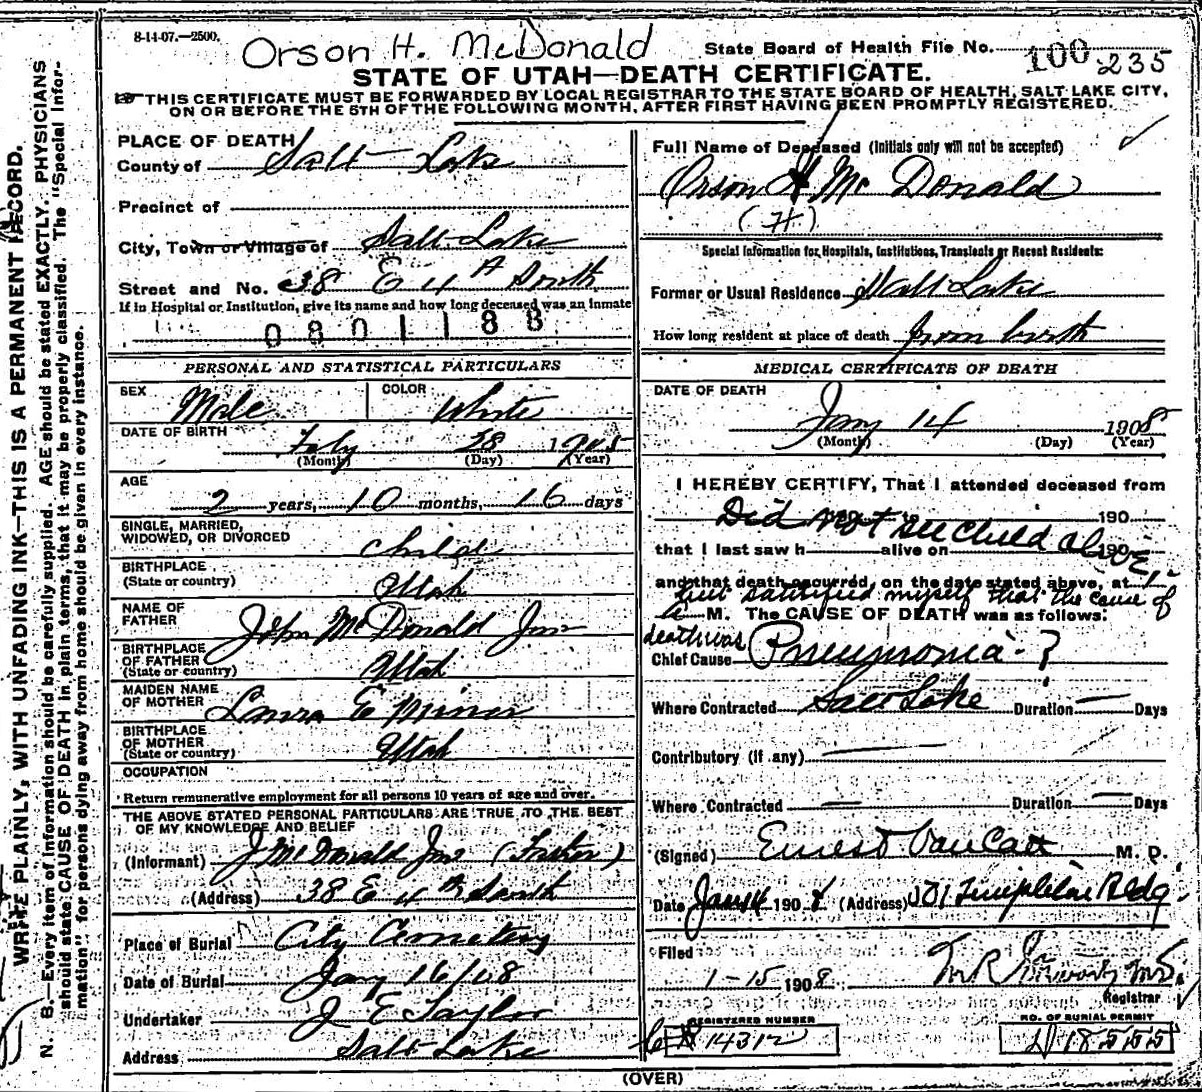 8-14-07.—2500.
Orson H. McDonald
State Board of Health File No. 100 235
STATE OF UTAH—DEATH CERTIFICATE.
THIS CERTIFICATE MUST BE FORWARDED BY LOCAL REGISTRAR TO THE STATE BOARD OF HEALTH, SALT LAKE CITY,
ON OR BEFORE THE 5TH OF THE FOLLOWING MONTH, AFTER FIRST HAVING BEEN PROMPTLY REGISTERED.
WRITE PLAINLY, WITH UNFADING INK—THIS IS A PERMANENT RECORD.
N. B.—Every item of information should be carefully supplied. AGE should be stated EXACTLY. PHYSICIANS
should state CAUSE OF DEATH in plain terms, that it may be properly classified. The "Special Infor-
mation" for persons dying away from home should be given in every instance.
PLACE OF DEATH
County of Salt Lake
Precinct of
City, Town or Village of Salt Lake
Street and No. 38 E 4th South
If in Hospital or Institution, give its name and how long deceased was an inmate
0801188
PERSONAL AND STATISTICAL PARTICULARS
SEX Male COLOR White
DATE OF BIRTH 28 1905
(Month) (Day) (Year)
AGE
2 years, 10 months, 16 days
SINGLE, MARRIED,
WIDOWED, OR DIVORCED Child
BIRTHPLACE
(State or country) Utah
NAME OF
FATHER John McDonald Jnr
BIRTHPLACE
OF FATHER
(State or country) Utah
MAIDEN NAME
OF MOTHER Laura E Miner
BIRTHPLACE
OF MOTHER
(State or country) Utah
OCCUPATION
Return remunerative employment for all persons 10 years of age and over.
THE ABOVE STATED PERSONAL PARTICULARS ARE TRUE TO THE BEST
OF MY KNOWLEDGE AND BELIEF
(Informant) J McDonald Jnr (Father)
(Address) 38 E 4th South
Place of Burial City Cemetery
Date of Burial Jany 16/08
Undertaker J E Taylor
Address Salt Lake
Full Name of Deceased (Initials only will not be accepted)
Orson H McDonald
(H)
Special Information for Hospitals, Institutions, Transients or Recent Residents:
Former or Usual Residence Salt Lake
How long resident at place of death from birth
MEDICAL CERTIFICATE OF DEATH
DATE OF DEATH
Jany 14 1908
(Month) (Day) (Year)
I HEREBY CERTIFY, That I attended deceased from
Did not see Child alive, 190
that I last saw h alive on 190
and that death occurred, on the date stated above, at 1-
but satisfied myself that the cause of
a M. The CAUSE OF DEATH was as follows:
death was
Chief Cause Pneumonia ?
Where Contracted Salt Lake Duration — Days
Contributory (if any) —
Where Contracted — Duration — Days
(Signed) Ernest Van Cott M. D.
Date Jan 14 1908 (Address) 501 Templeton Bldg.
Filed
1-15 1908
Registrar
REGISTERED NUMBER
14312
NO. OF BURIAL PERMIT
18555
(OVER)